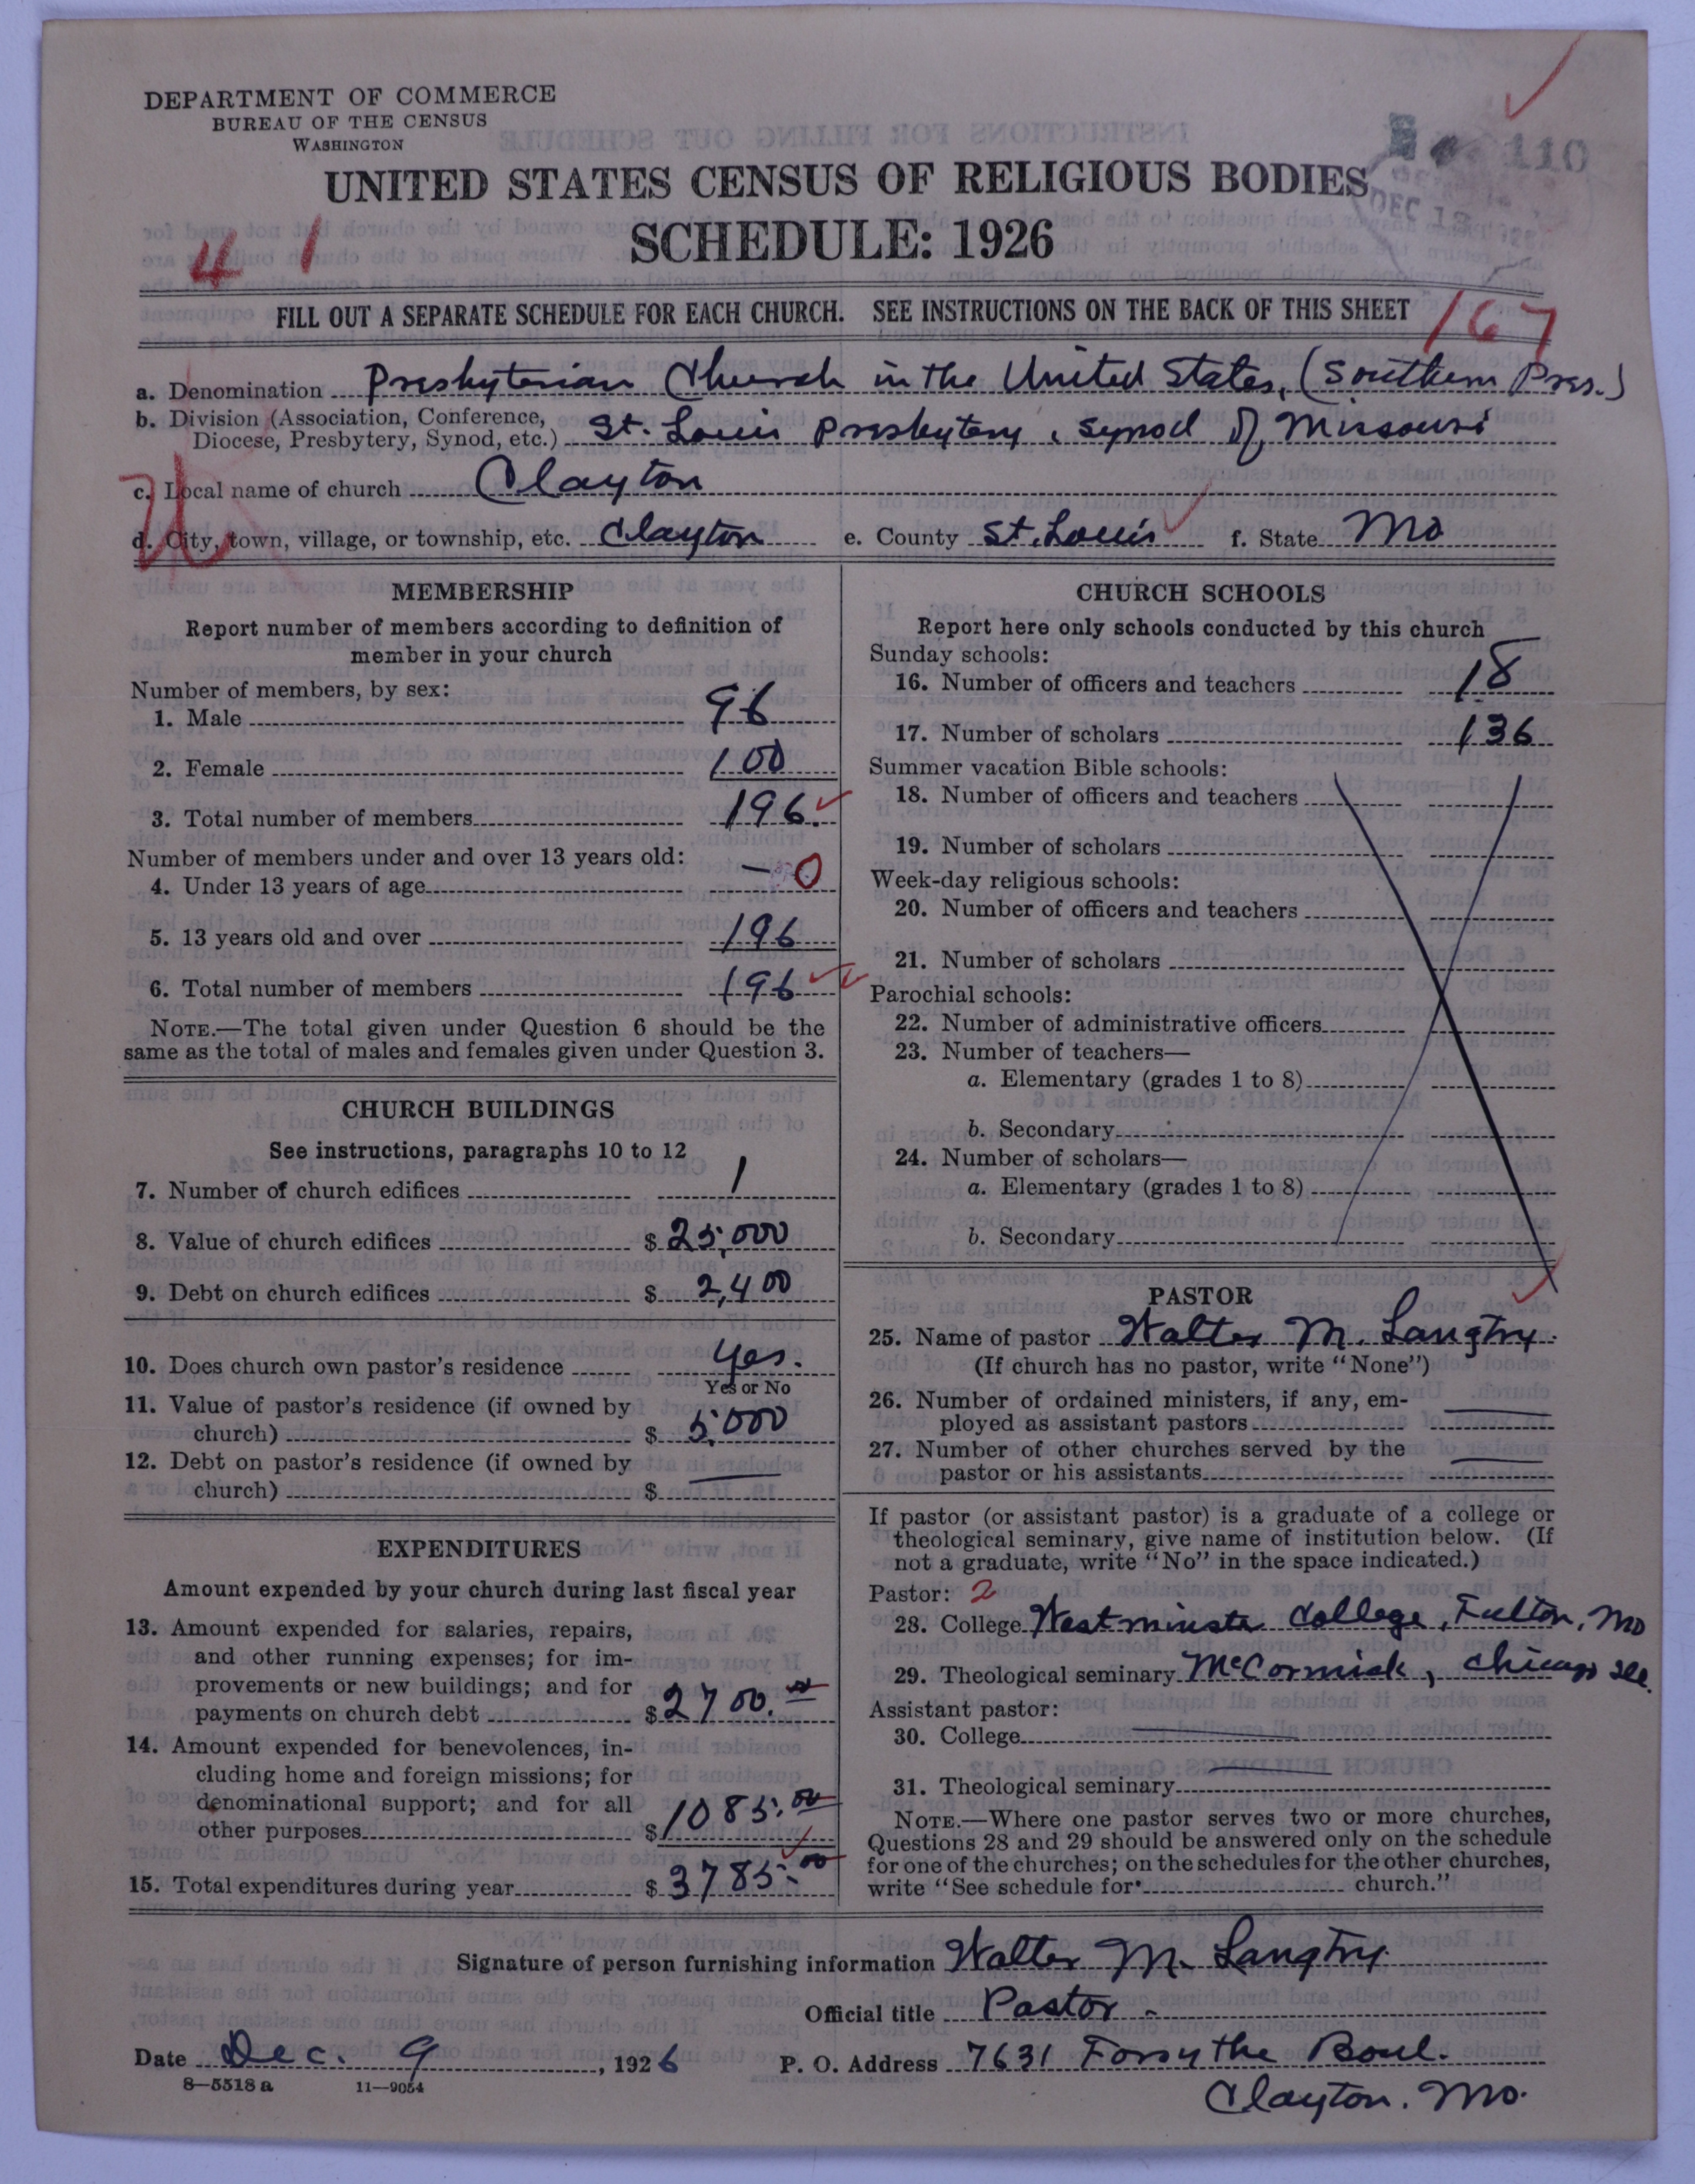 DEPARTMENT OF COMMERCE
BUREAU OF THE CENSUS
WASHINGTON
110
UNITED STATES CENSUS OF RELIGIOUS BODIES
DEC 13
SCHEDULE: 1926
4 1
FILL OUT A SEPARATE SCHEDULE FOR EACH CHURCH. SEE INSTRUCTIONS ON THE BACK OF THIS SHEET
167
a. Denomination Presbyterian Church in the United States, (Southern Pres.)
b. Division (Association, Conference,
Diocese, Presbytery, Synod, etc.) St. Louis Presbytery, Synod of Missouri
c. Local name of church Clayton
d. City, town, village, or township, etc. Clayton e. County St. Louis f. State Mo
MEMBERSHIP
Report number of members according to definition of
member in your church
Number of members, by sex:
1. Male 96
2. Female 100
3. Total number of members 196.
Number of members under and over 13 years old:
4. Under 13 years of age — 0
5. 13 years old and over 196
6. Total number of members 196
NOTE.—The total given under Question 6 should be the
same as the total of males and females given under Question 3.
CHURCH BUILDINGS
See instructions, paragraphs 10 to 12
7. Number of church edifices 1
8. Value of church edifices $ 25,000
9. Debt on church edifices $ 2,400
10. Does church own pastor's residence yes.
Yes or No
11. Value of pastor's residence (if owned by
church) $ 5,000
12. Debt on pastor's residence (if owned by
church) $ —
EXPENDITURES
Amount expended by your church during last fiscal year
13. Amount expended for salaries, repairs,
and other running expenses; for im-
provements or new buildings; and for
payments on church debt $ 2700.00
14. Amount expended for benevolences, in-
cluding home and foreign missions; for
denominational support; and for all
other purposes $ 1085.00
15. Total expenditures during year $ 3785.00
CHURCH SCHOOLS
Report here only schools conducted by this church
Sunday schools:
16. Number of officers and teachers 18
17. Number of scholars 136
Summer vacation Bible schools:
18. Number of officers and teachers
19. Number of scholars
Week-day religious schools:
20. Number of officers and teachers
21. Number of scholars
Parochial schools:
22. Number of administrative officers
23. Number of teachers—
a. Elementary (grades 1 to 8)
b. Secondary
24. Number of scholars—
a. Elementary (grades 1 to 8)
b. Secondary
PASTOR
25. Name of pastor Walter M. Langtry.
(If church has no pastor, write "None")
26. Number of ordained ministers, if any, em-
ployed as assistant pastors —
27. Number of other churches served by the
pastor or his assistants —
If pastor (or assistant pastor) is a graduate of a college or
theological seminary, give name of institution below. (If
not a graduate, write "No" in the space indicated.)
Pastor: 2
28. College Westminster College, Fulton, Mo
29. Theological seminary McCormick, Chicago Ill.
Assistant pastor:
30. College
31. Theological seminary
NOTE.—Where one pastor serves two or more churches,
Questions 28 and 29 should be answered only on the schedule
for one of the churches; on the schedules for the other churches,
write "See schedule for church."
Signature of person furnishing information Walter M. Langtry.
Official title Pastor -
Date Dec. 9, 1926 P. O. Address 7631 Forsythe Boul.
8—5518 a 11—9054
Clayton. Mo.